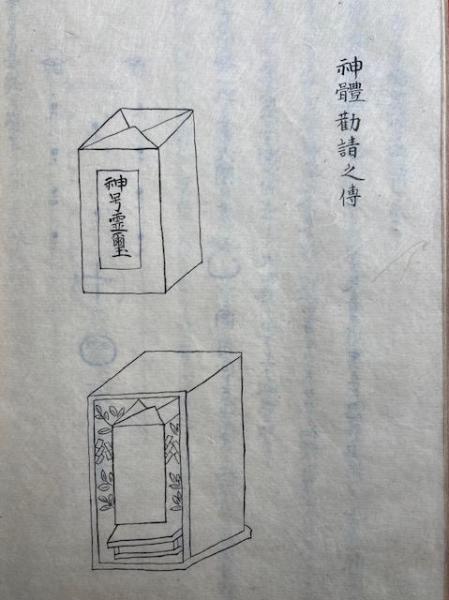 神體勸請之傳
神号靈璽